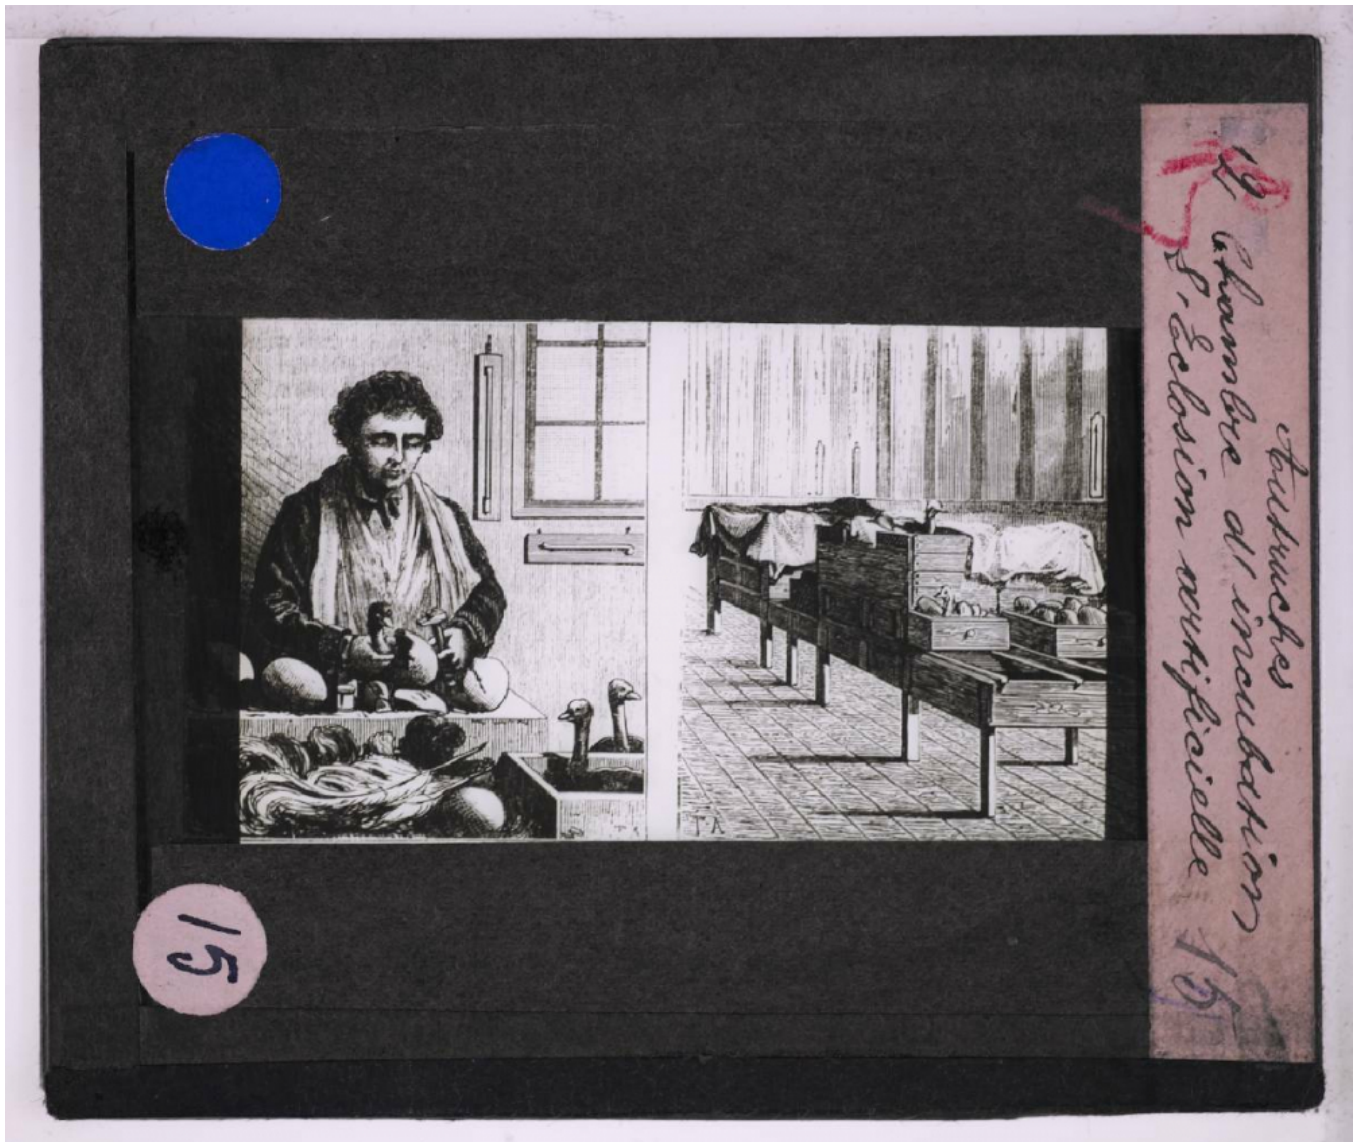 Autruches
12 Chambre d'incubation
S. Eclosion artificielle 15
15